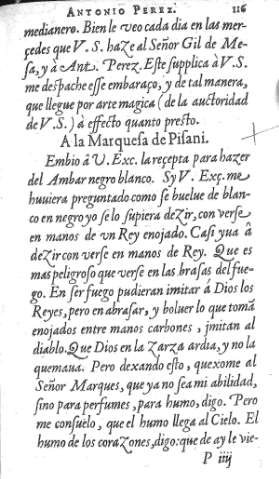 ANTONIO PEREZ. 116
medianero. Bien le veo cada dia en las mer-
çedes que V. S. haze al Señor Gil de Me-
sa, y à Ant. Perez. Este supplica à V. S.
me despache esse embaraço, y de tal manera,
que llegue por arte magica (de la auctoridad
de V. S.) à effecto quanto presto.
A la Marquesa de Pisani.
Embio à V. Exc. la reçepta para hazer
del Ambar negro blanco. Sy V. Exç. me
huuiera preguntado como se buelue de blan-
co en negro yo se lo supiera deZir, con verse
en manos de vn Rey enojado. Casi yua à
deZir con verse en manos de Rey. Que es
mas peligroso que verse en las brasas del fue-
go. En ser fuego pudieran imitar à Dios los
Reyes, pero en abrasar, y boluer lo que tomã
enojados entre manos carbones, jmitan al
diablo. Que Dios en la Zarza ardia, y no la
quemaua. Pero dexando esto, quexome al
Señor Marques, que ya no sea mi abilidad,
sino para perfumes, para humo, digo. Pero
me consuelo, que el humo llega al Cielo. El
humo de los coraZones, digo: que de ay le vie-
P iiij